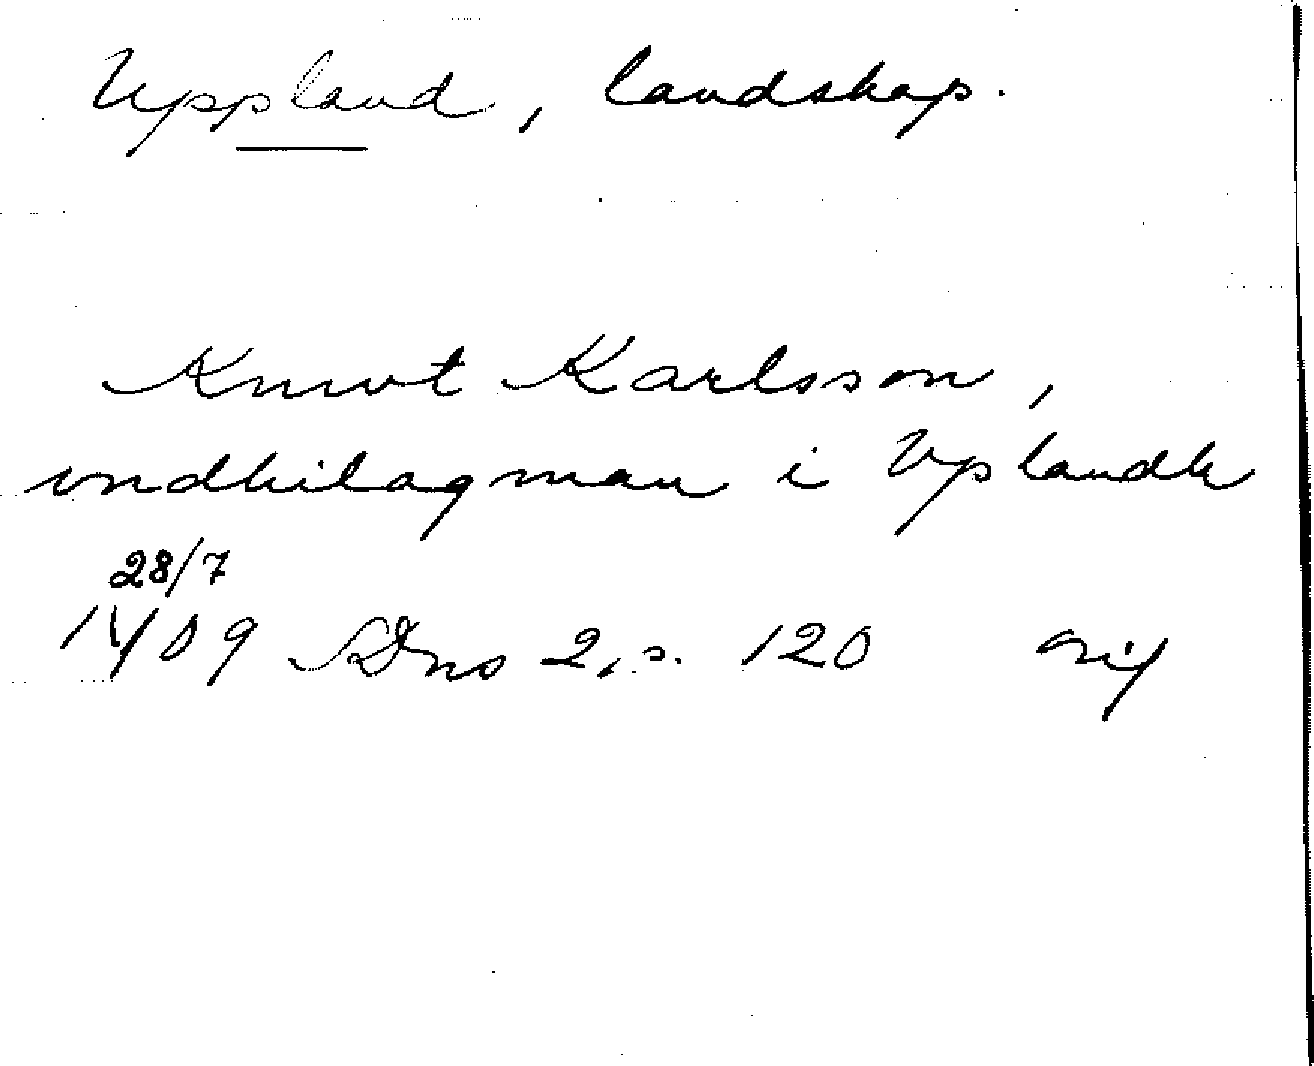 Uppland, landskap.
Knwt Karlsson,
vndhilagman i Vplandh
28/7
1409 SDns 2, s. 120 nif